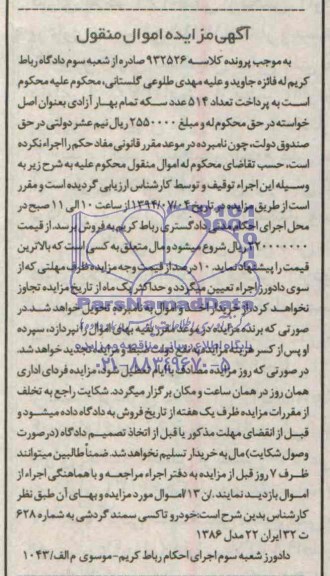 آگهی مزایده اموال منقول
به موجب پرونده کلاسه ۹۳۲۵۲۶ صادره از شعبه سوم دادگاه رباط
کریم له فائزه جاوید و علیه مهدی طلوعی گلستانی، محکوم علیه محکوم
است به پرداخت تعداد ۵۱۴ عدد سکه تمام بهار آزادی بعنوان اصل
خواسته در حق محکوم له و مبلغ ۲۵۵۰۰۰۰ ریال نیم عشر دولتی در حق
صندوق دولت، چون نامبرده در موعد مقرر قانونی مفاد حکم را اجرا نکرده
است، حسب تقاضای محکوم له اموال منقول محکوم علیه به شرح زیر به
وسیله این اجراء توقیف و توسط کارشناس ارزیابی گردیده است و مقرر
است از طریق مزایده در تاریخ ۱۳۹۴/۰۷/۰۴ از ساعت ۱۰ الی ۱۱ صبح در
محل اجرای احکام دادگستری رباط کریم به فروش برسد. از قیمت
ریال شروع میشود و مال متعلق به کسی است که بالاترین
قیمت را پیشنهاد نماید. ۱۰ درصد از قیمت وجه مزایده ظرف مهلتی که از
سوی دادورز اجراء تعیین میگردد و حداکثر یک ماه از تاریخ مزایده تجاوز
نخواهد کرد از خریدار اخذ و اموال به نامبرده تحویل خواهد شد. در
صورتی که برنده مزایده در موعد مقرر بقیه بهای اموال را نپردازد، سپرده
او پس از کسر هزینه مزایده به نفع دولت ضبط و مزایده تجدید خواهد شد.
در صورتی که روز مزایده مصادف با ایام تعطیل شود، مزایده فردای اداری
همان روز در همان ساعت و مکان برگزار میگردد. شکایت راجع به تخلف
از مقررات مزایده ظرف یک هفته از تاریخ فروش به دادگاه داده میشود و
قبل از انقضای مهلت مذکور یا قبل از اتخاذ تصمیم دادگاه (درصورت
وصول شکایت) مال به خریدار تسلیم نخواهد شد. ضمنا طالبین میتوانند
ظرف ۷ روز قبل از مزایده به دفتر اجراء مراجعه و با هماهنگی اجراء از
اموال بازدید نمایند. اموال مورد مزایده و بهای آن طبق نظر
کارشناس بدین شرح است: خودرو تاکسی سمند گردشی به شماره ۶۲۸
ت ۳۲ ایران ۲۲ مدل ۱۳۸۶
دادورز شعبه سوم اجرای احکام رباط کریم-موسوی م الف/۱۰۴۳
ParsNamadData
۰۲۱-۸۸۳۴۹۶۷۰-۵